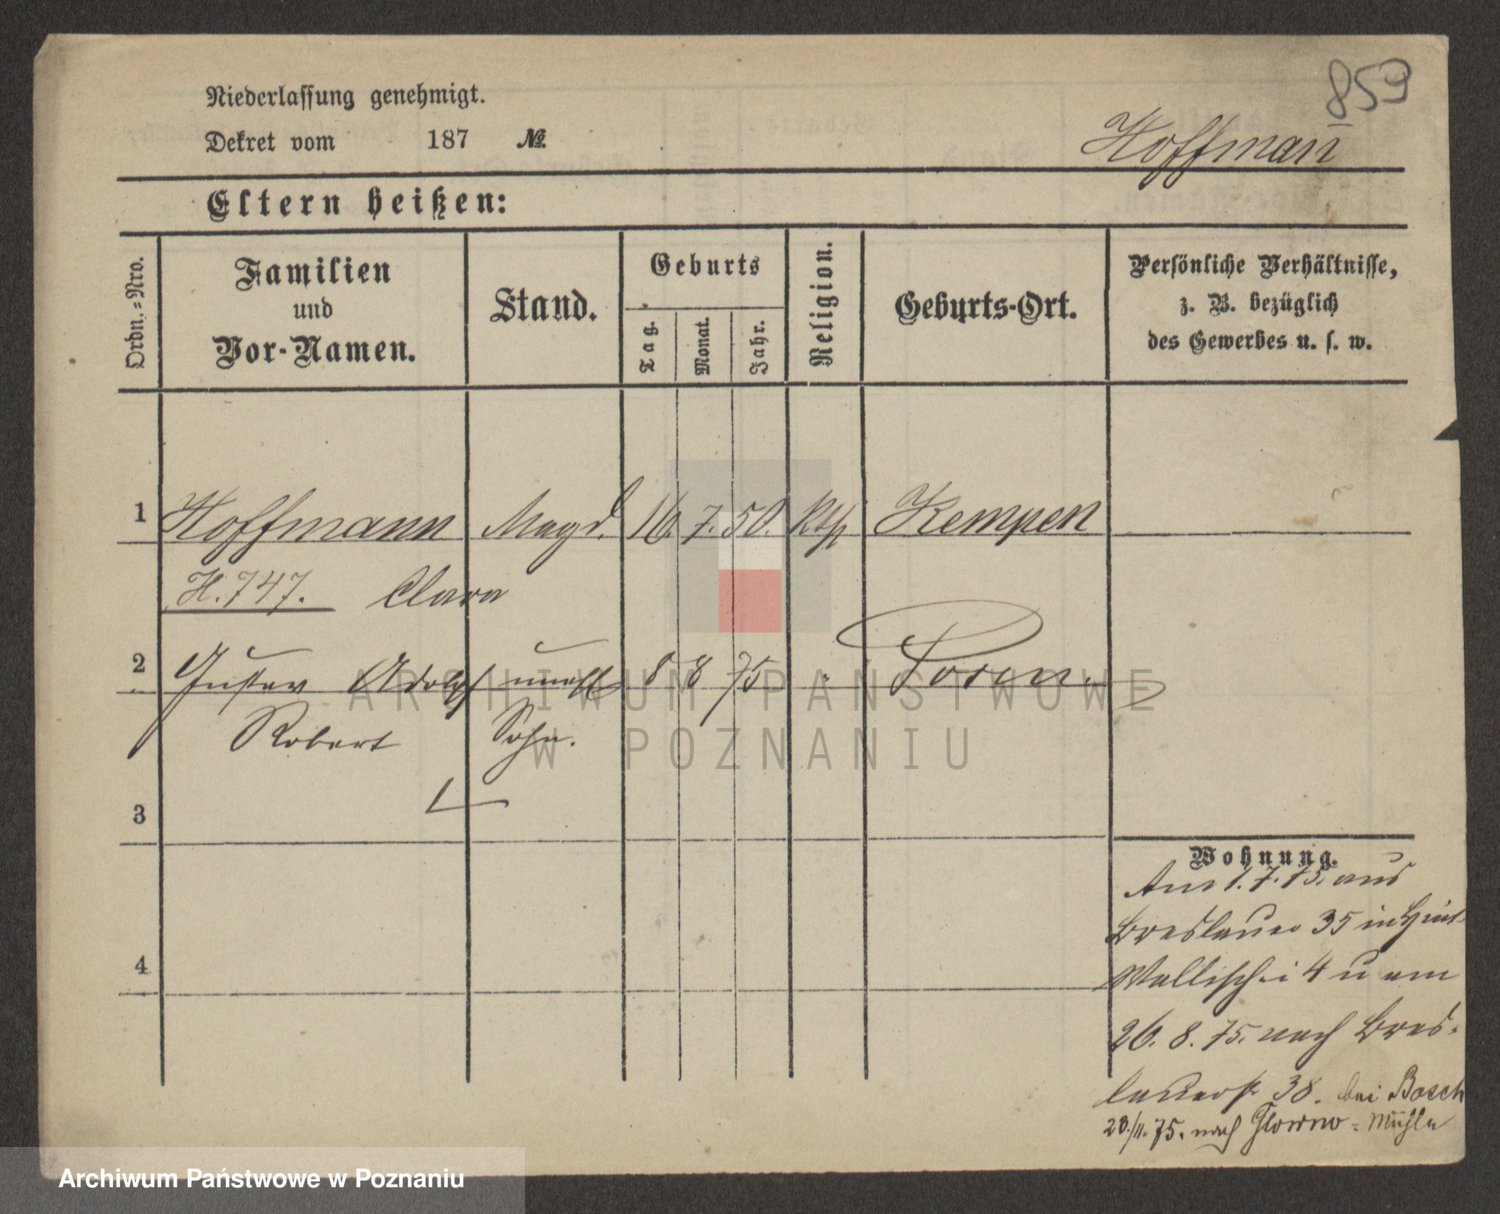 859
Niederlassung genehmigt.
Dekret vom 187 №
Hoffmañ
Eltern heißen:
Ordn.=Nro.
Familien
und
Vor-Namen.
Stand.
Geburts
Tag.
Monat.
Jahr.
Religion.
Geburts-Ort.
Persönliche Verhältnisse,
z. B. bezüglich
des Gewerbes u. s. w.
1 Hoffmann Magd. 16. 7. 50. Kth Kempen
H. 747. Clara
2 Gustav Adolf unehl 8 8 75 " Posen.
Robert Sohn.
3
4
Wohnung.
Am 1. 7. 75. aus
Breslauer 35 in Hint
Wallischei 4 u am
26. 8. 75. nach Bres-
lauerst 38. bei Bosch
23./11. 75. nach Glowno = Mühle
ARCHIWUM PAŃSTWOWE
W POZNANIU
Archiwum Państwowe w Poznaniu